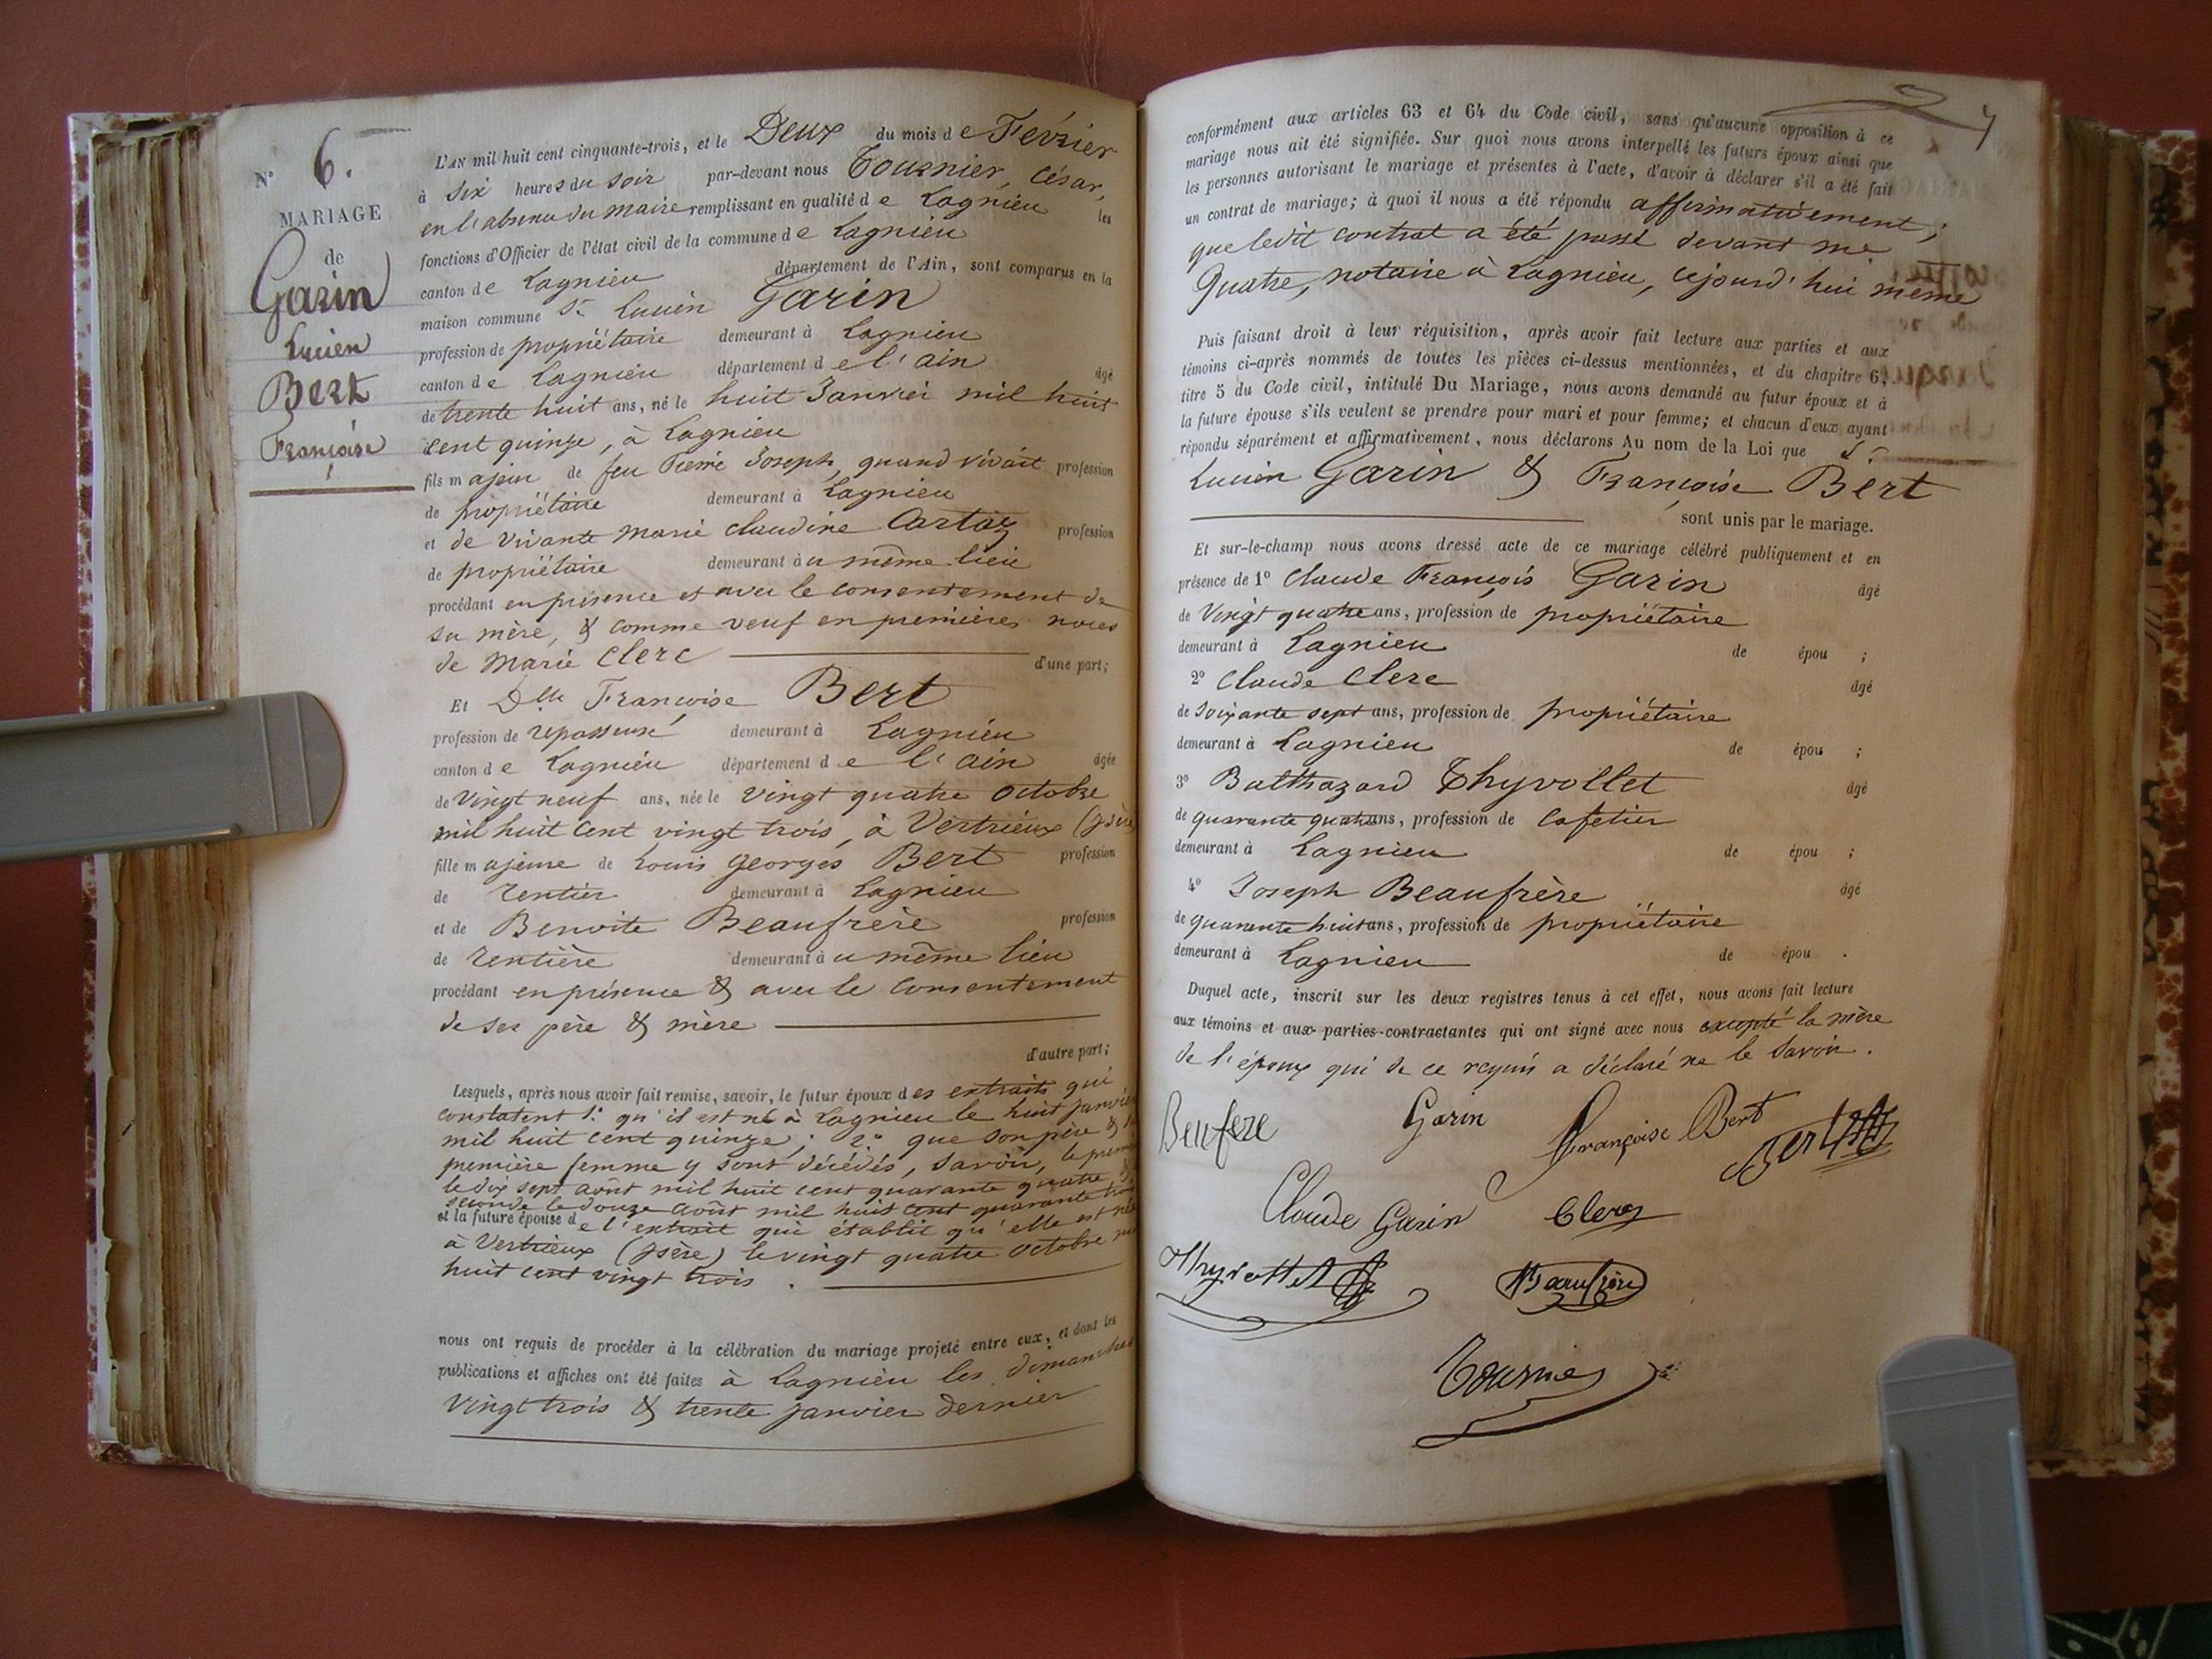 N° 6.
MARIAGE
de
Garin
Lucien
Bert
Françoise
L'AN mil huit cent cinquante-trois, et le Deux du mois de Février
à six heures du soir par-devant nous Tournier, César,
en l'absence du maire remplissant en qualité de Lagnieu les
fonctions d'Officier de l'état civil de la commune de Lagnieu
canton de Lagnieu département de l'Ain, sont comparus en la
maison commune Sr Lucien Garin
profession de propriétaire demeurant à Lagnieu
canton de Lagnieu département de l'ain âgé
de trente huit ans, né le huit Janvier mil huit
cent quinze, à Lagnieu
fils majeur de feu Pierre Joseph, quand vivait profession
de propriétaire demeurant à Lagnieu
et de vivante Marie Claudine Cartaz profession
de propriétaire demeurant au même lieu
procédant en présence et avec le consentement de
sa mère, & comme veuf en premières noces
de Marie Clerc d'une part;
Et Dlle Françoise Bert
profession de repasseuse demeurant à Lagnieu
canton de Lagnieu département de l'ain âgée
de vingt neuf ans, née le vingt quatre octobre
mil huit cent vingt trois, à Vertrieux (Isère)
fille majeure de Louis Georges Bert profession
de rentier demeurant à Lagnieu
et de Benoite Beaufrère profession
de rentière demeurant au même lieu
procédant en présence & avec le consentement
de ses père & mère
d'autre part;
Lesquels, après nous avoir fait remise, savoir, le futur époux des extraits qui
constatent 1.° qu'il est né à Lagnieu le huit janvier
mil huit cent quinze; 2.° que son père & sa
première femme y sont décédés, savoir, le premier
le dix sept août mil huit cent quarante quatre &
seconde le douze août mil huit cent quarante trois
et la future épouse de l'extrait qui établit qu'elle est née
à Vertrieux (Isère) le vingt quatre octobre mil
huit cent vingt trois.
nous ont requis de procéder à la célébration du mariage projeté entre eux, et dont les
publications et affiches ont été faites à Lagnieu les dimanches
vingt trois & trente janvier dernier
conformément aux articles 63 et 64 du Code civil, sans qu'aucune opposition à ce
mariage nous ait été signifiée. Sur quoi nous avons interpellé les futurs époux ainsi que
les personnes autorisant le mariage et présentes à l'acte, d'avoir à déclarer s'il a été fait
un contrat de mariage; à quoi il nous a été répondu affirmativement;
que ledit contrat a été passé devant me
Quatre, notaire à Lagnieu, cejourd'hui même
Puis faisant droit à leur réquisition, après avoir fait lecture aux parties et aux
témoins ci-après nommés de toutes les pièces ci-dessus mentionnées, et du chapitre 6,
titre 5 du Code civil, intitulé Du Mariage, nous avons demandé au futur époux et à
la future épouse s'ils veulent se prendre pour mari et pour femme; et chacun d'eux ayant
répondu séparément et affirmativement, nous déclarons Au nom de la Loi que Sr
Lucien Garin & Françoise Bert
sont unis par le mariage.
Et sur-le-champ nous avons dressé acte de ce mariage célébré publiquement et en
présence de 1° Claude François Garin âgé
de Vingt quatre ans, profession de propriétaire
demeurant à Lagnieu de épou ;
2° Claude Clerc âgé
de soixante sept ans, profession de propriétaire
demeurant à Lagnieu de épou ;
3° Balthazard Thyvollet âgé
de quarante quatre ans, profession de Cafetier
demeurant à Lagnieu de épou ;
4° Joseph Beaufrère âgé
de quarante huit ans, profession de propriétaire
demeurant à Lagnieu de épou .
Duquel acte, inscrit sur les deux registres tenus à cet effet, nous avons fait lecture
aux témoins et aux parties contractantes qui ont signé avec nous excepté la mère
de l'époux qui de ce requis a déclaré ne le savoir.
Beufere Garin Françoise Bert Bert
Claude Garin Clerc
Thyvollet Beaufrère
Tournier